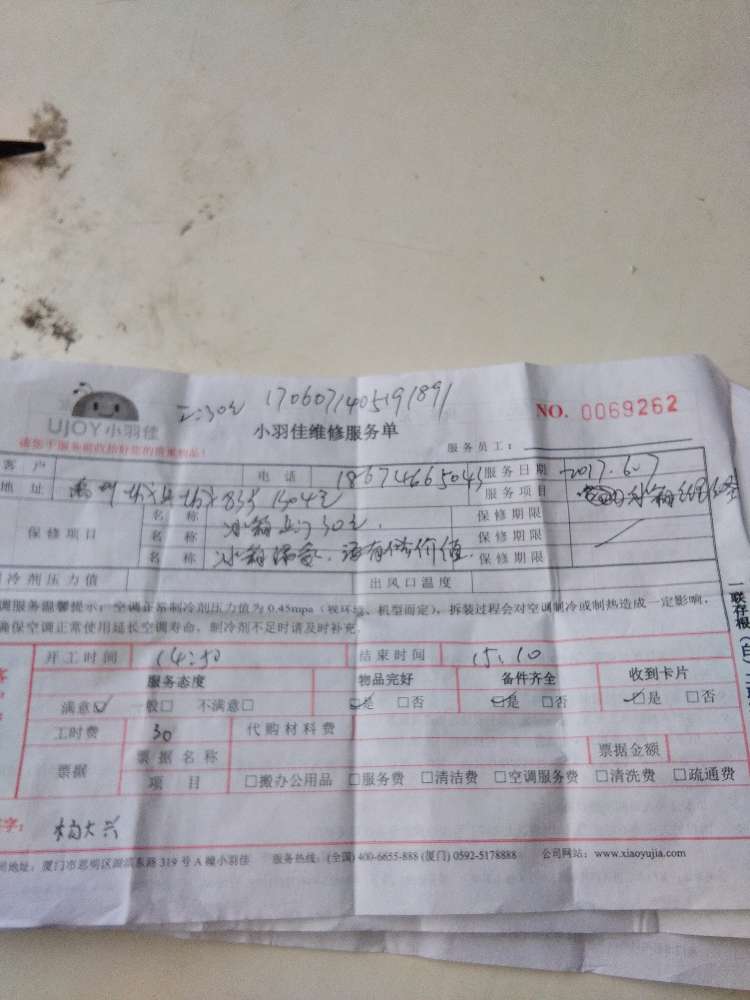 1706071405191891
NO. 0069262
UJOY小羽佳
小羽佳维修服务单
服务员工：
客 户
电 话 18674665043
服务日期 2017.6.7
地 址
服务项目
保修项目
名 称 冰箱上门30元.
保修期限
名 称
保修期限
名 称 冰箱 没有修价值.
保修期限
冷剂压力值
出风口温度
调服务温馨提示：空调正常制冷剂压力值为0.45mpa（视环境、机型而定），拆装过程会对空调制冷或制热造成一定影响，
确保空调正常使用延长空调寿命，制冷剂不足时请及时补充。
开工时间 14:50 结束时间 15.10
服务态度 物品完好 备件齐全 收到卡片
满意☑ 一般□ 不满意□ ☑是 □否 ☑是 □否 ☑是 □否
工时费 30 代购材料费
票据 票据名称 票据金额
项 目 □搬办公用品 □服务费 □清洁费 □空调服务费 □清洗费 □疏通费
字： 杨大兴
司地址：厦门市思明区湖滨东路319号A幢小羽佳 服务热线：(全国) 400-6655-888 (厦门) 0592-5178888 公司网站：www.xiaoyujia.com
一联存根